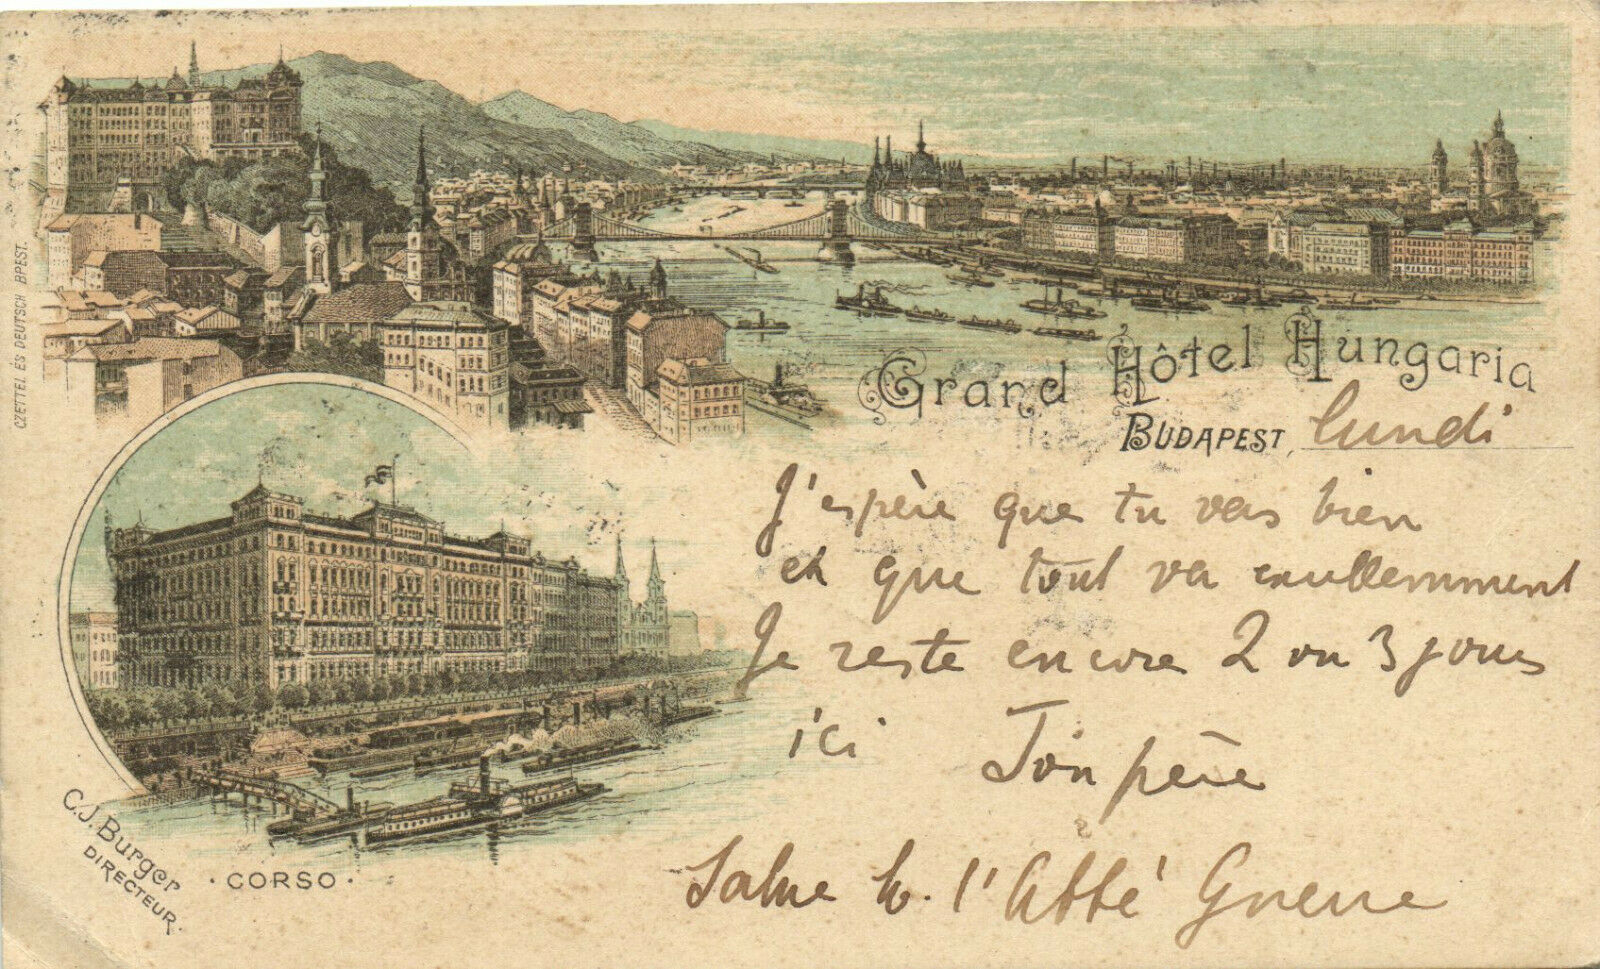 CZETTEL ÉS DEUTSCH BPEST.
Grand Hôtel Hungaria
BUDAPEST, lundi
J'espère que tu vas bien
et que tout va excellemment
Je reste encore 2 ou 3 jours
ici Ton père
Salue M. l'Abbé Guerre
C.J. Burger
DIRECTEUR.
· CORSO ·